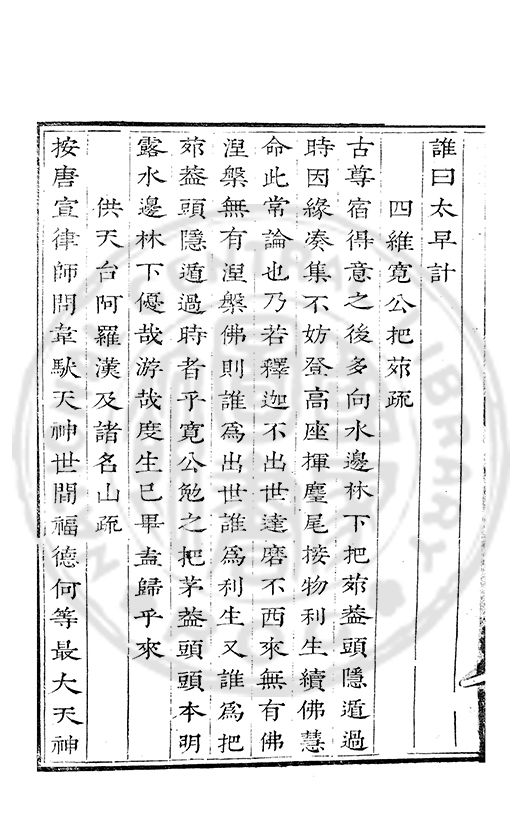 誰曰太早計
四維寬公把茆疏
古尊宿得意之後多向水邊林下把茆蓋頭隱遁過
時因緣凑集不妨登高座揮麈尾接物利生續佛慧
命此常論也乃若釋迦不出世達磨不西來無有佛
涅槃無有涅槃佛則誰爲出世誰爲利生又誰爲把
茆蓋頭隱遁過時者乎寬公勉之把茅蓋頭頭本明
露水邊林下優哉游哉度生已畢盍歸乎來
供天台阿羅漢及諸名山疏
按唐宣律師問韋馱天神世間福德何等最大天神